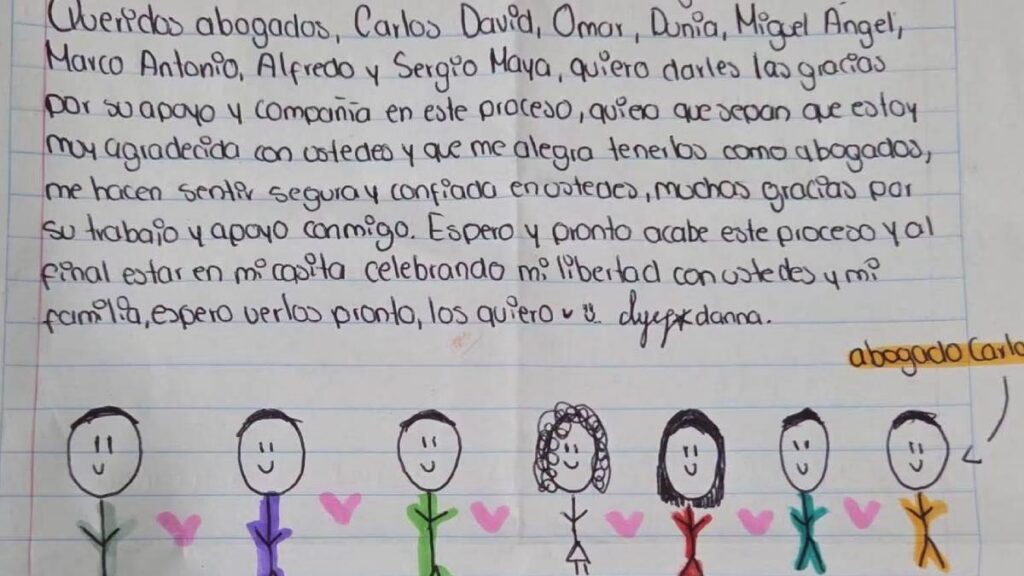 Queridos abogados, Carlos David, Omar, Dunia, Miguel Ángel,
Marco Antonio, Alfredo y Sergio Maya, quiero darles las gracias
por su apoyo y compañia en este proceso, quiero que sepan que estoy
muy agradecida con ustedes y que me alegra tenerlos como abogados,
me hacen sentir segura y confiada en ustedes, muchas gracias por
su trabajo y apoyo conmigo. Espero y pronto acabe este proceso y al
final estar en mi casita celebrando mi libertad con ustedes y mi
familia, espero verlos pronto, los quiero danna.
abogado Carlo